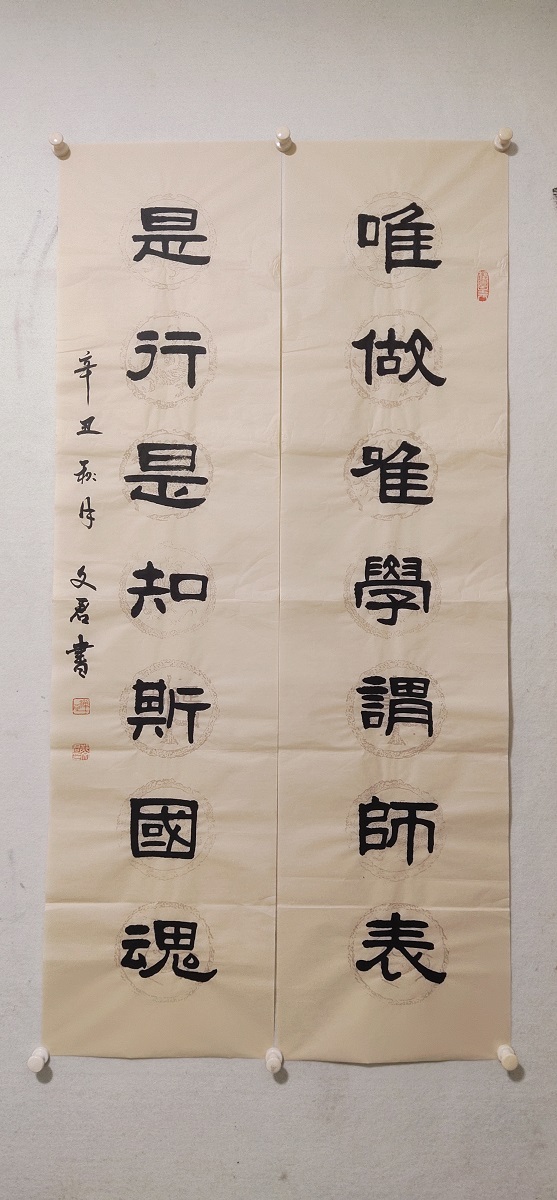 唯做唯學謂師表
是行是知斯國魂
辛丑秋月 文君書